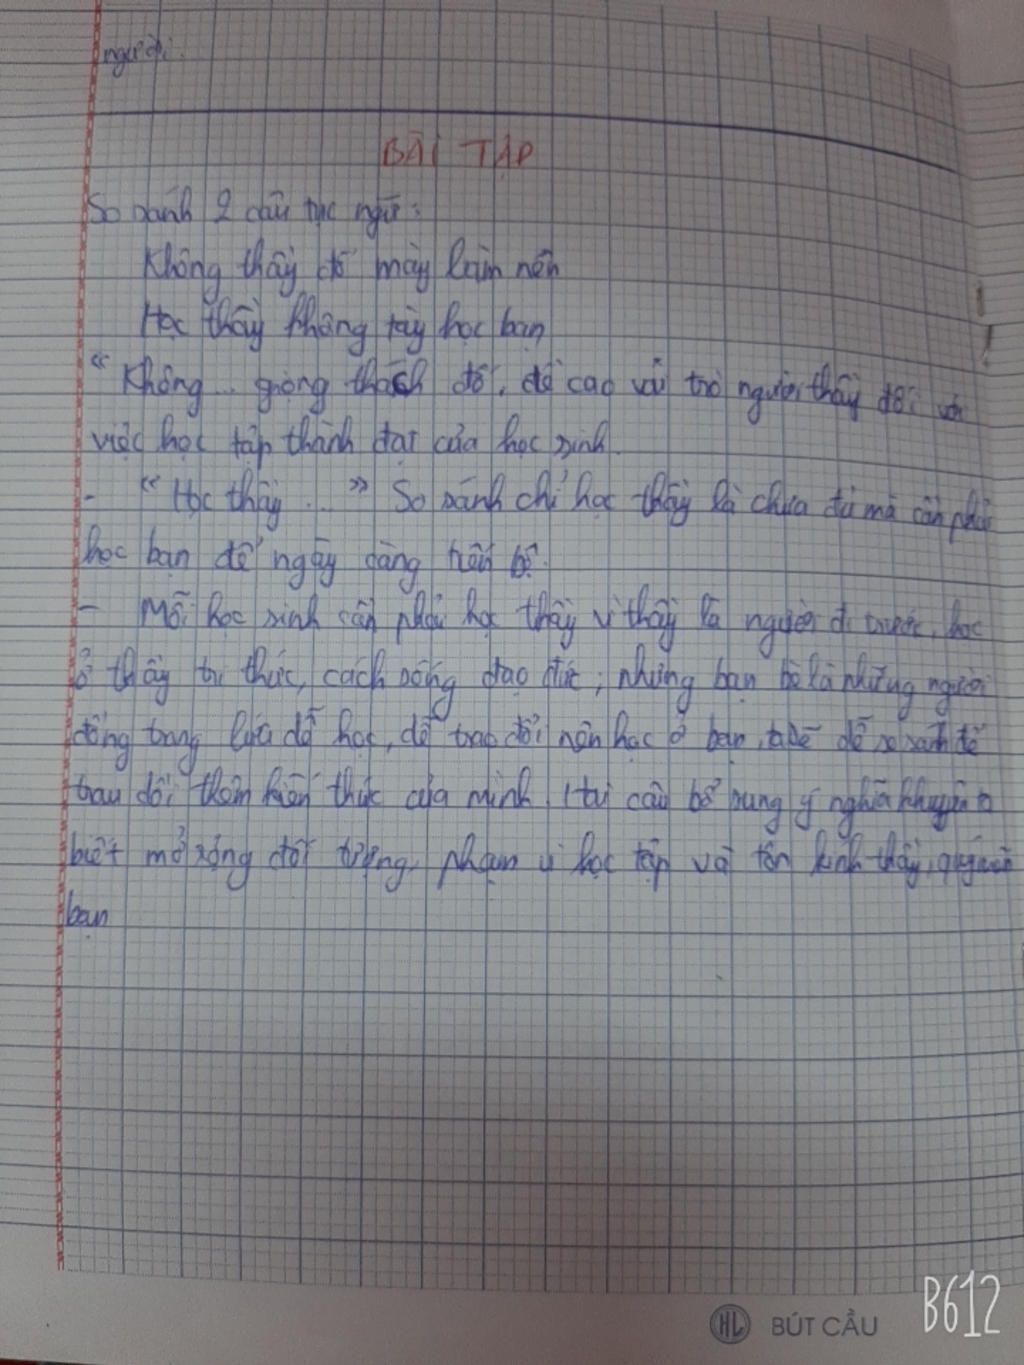 người.
BÀI TẬP
So sánh 2 câu tục ngữ:
Không thầy đố mày làm nên
Học thầy không tày học bạn
"Không... giọng thách đố, đề cao vai trò người thầy đối với
việc học tập thành đạt của học sinh.
- "Học thầy..." So sánh chỉ học thầy là chưa đủ mà cần phải
học bạn để ngày càng tiến bộ.
- Mỗi học sinh cần phải học thầy vì thầy là người đi trước, học
ở thầy tri thức, cách sống đạo đức; nhưng bạn bè là những người
đồng trang lứa dễ học, dễ trao đổi nên học ở bạn, dễ so sánh để
trau dồi thêm kiến thức của mình. Hai câu bổ sung ý nghĩa khuyên
biết mở rộng đối tượng, phạm vi học tập và tôn kính thầy, quý mến
bạn
HL BÚT CẦU
B612